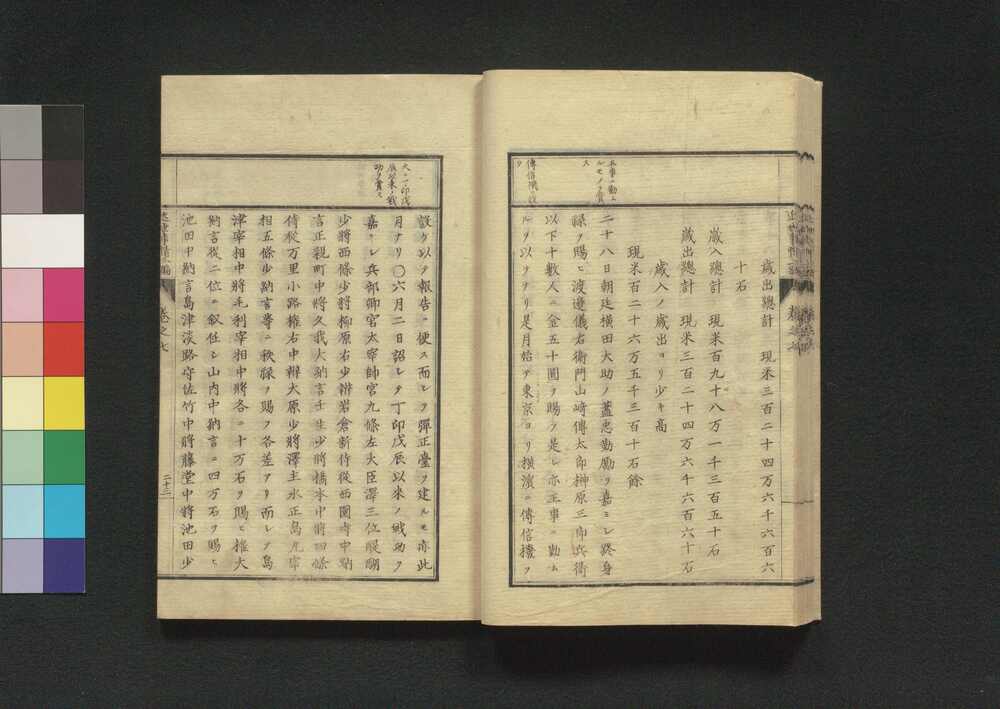 歳出總計　現米三百二十四万六千六百六
十石
歳入總計　現米百九十八万一千三百五十石
歳出總計　現米三百二十四万六千六百六十石
歳入ノ歳出ヨリ少キ高
現米百二十六万五千三百十石餘
王事ニ勤ム
ルモノヲ賞
ス
二十八日朝廷橫田大助ノ藎忠勤勵ヲ嘉ミシ終身
祿ヲ賜ヒ渡邊儀右衛門山﨑傳太郎榊原三郎兵衛
以下十數人ニ金五十圓ヲ賜フ是レ亦王事ニ勤ム
傳信機ヲ設
ク
ルヲ以テナリ是月始テ東京ヨリ橫濱ニ傳信機ヲ
設ケ以テ報告ニ便ス而シテ彈正臺ヲ建ルモ亦此
大ニ丁卯戊
辰以来ノ戰
功ヲ賞ス
月ナリ〇六月二日詔シテ丁卯戊辰以来ノ戰功ヲ
嘉ミシ兵部卿宮太宰帥宮九條左大臣澤三位醍醐
少將西條少將柳原右少辨岩倉新侍從西園寺中納
言正親町中將久我大納言壬生少將橋本中將四條
侍從万里小路權右中辨大原少將澤主水正島丸宰
相五條少納言等ニ秩祿ヲ賜フ各差アリ而シテ島
津宰相中將毛利宰相中將各ニ十万石ヲ賜ヒ權大
納言從二位ニ叙任シ山内中納言ニ四万石ヲ賜ヒ
池田中納言島津淡路守佐竹中將藤堂中將池田少
卷之七
二十三